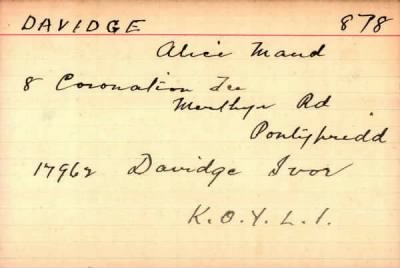 DAVIDGE 878
Alice Maud
8 Coronation Tce
Merthyr Rd
Pontypridd
17962 Davidge Ivor
K.O.Y.L.I.